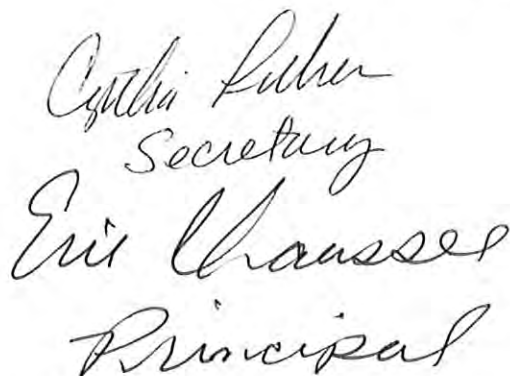 Cynthia
Secretary
Eric Chaussee
Principal